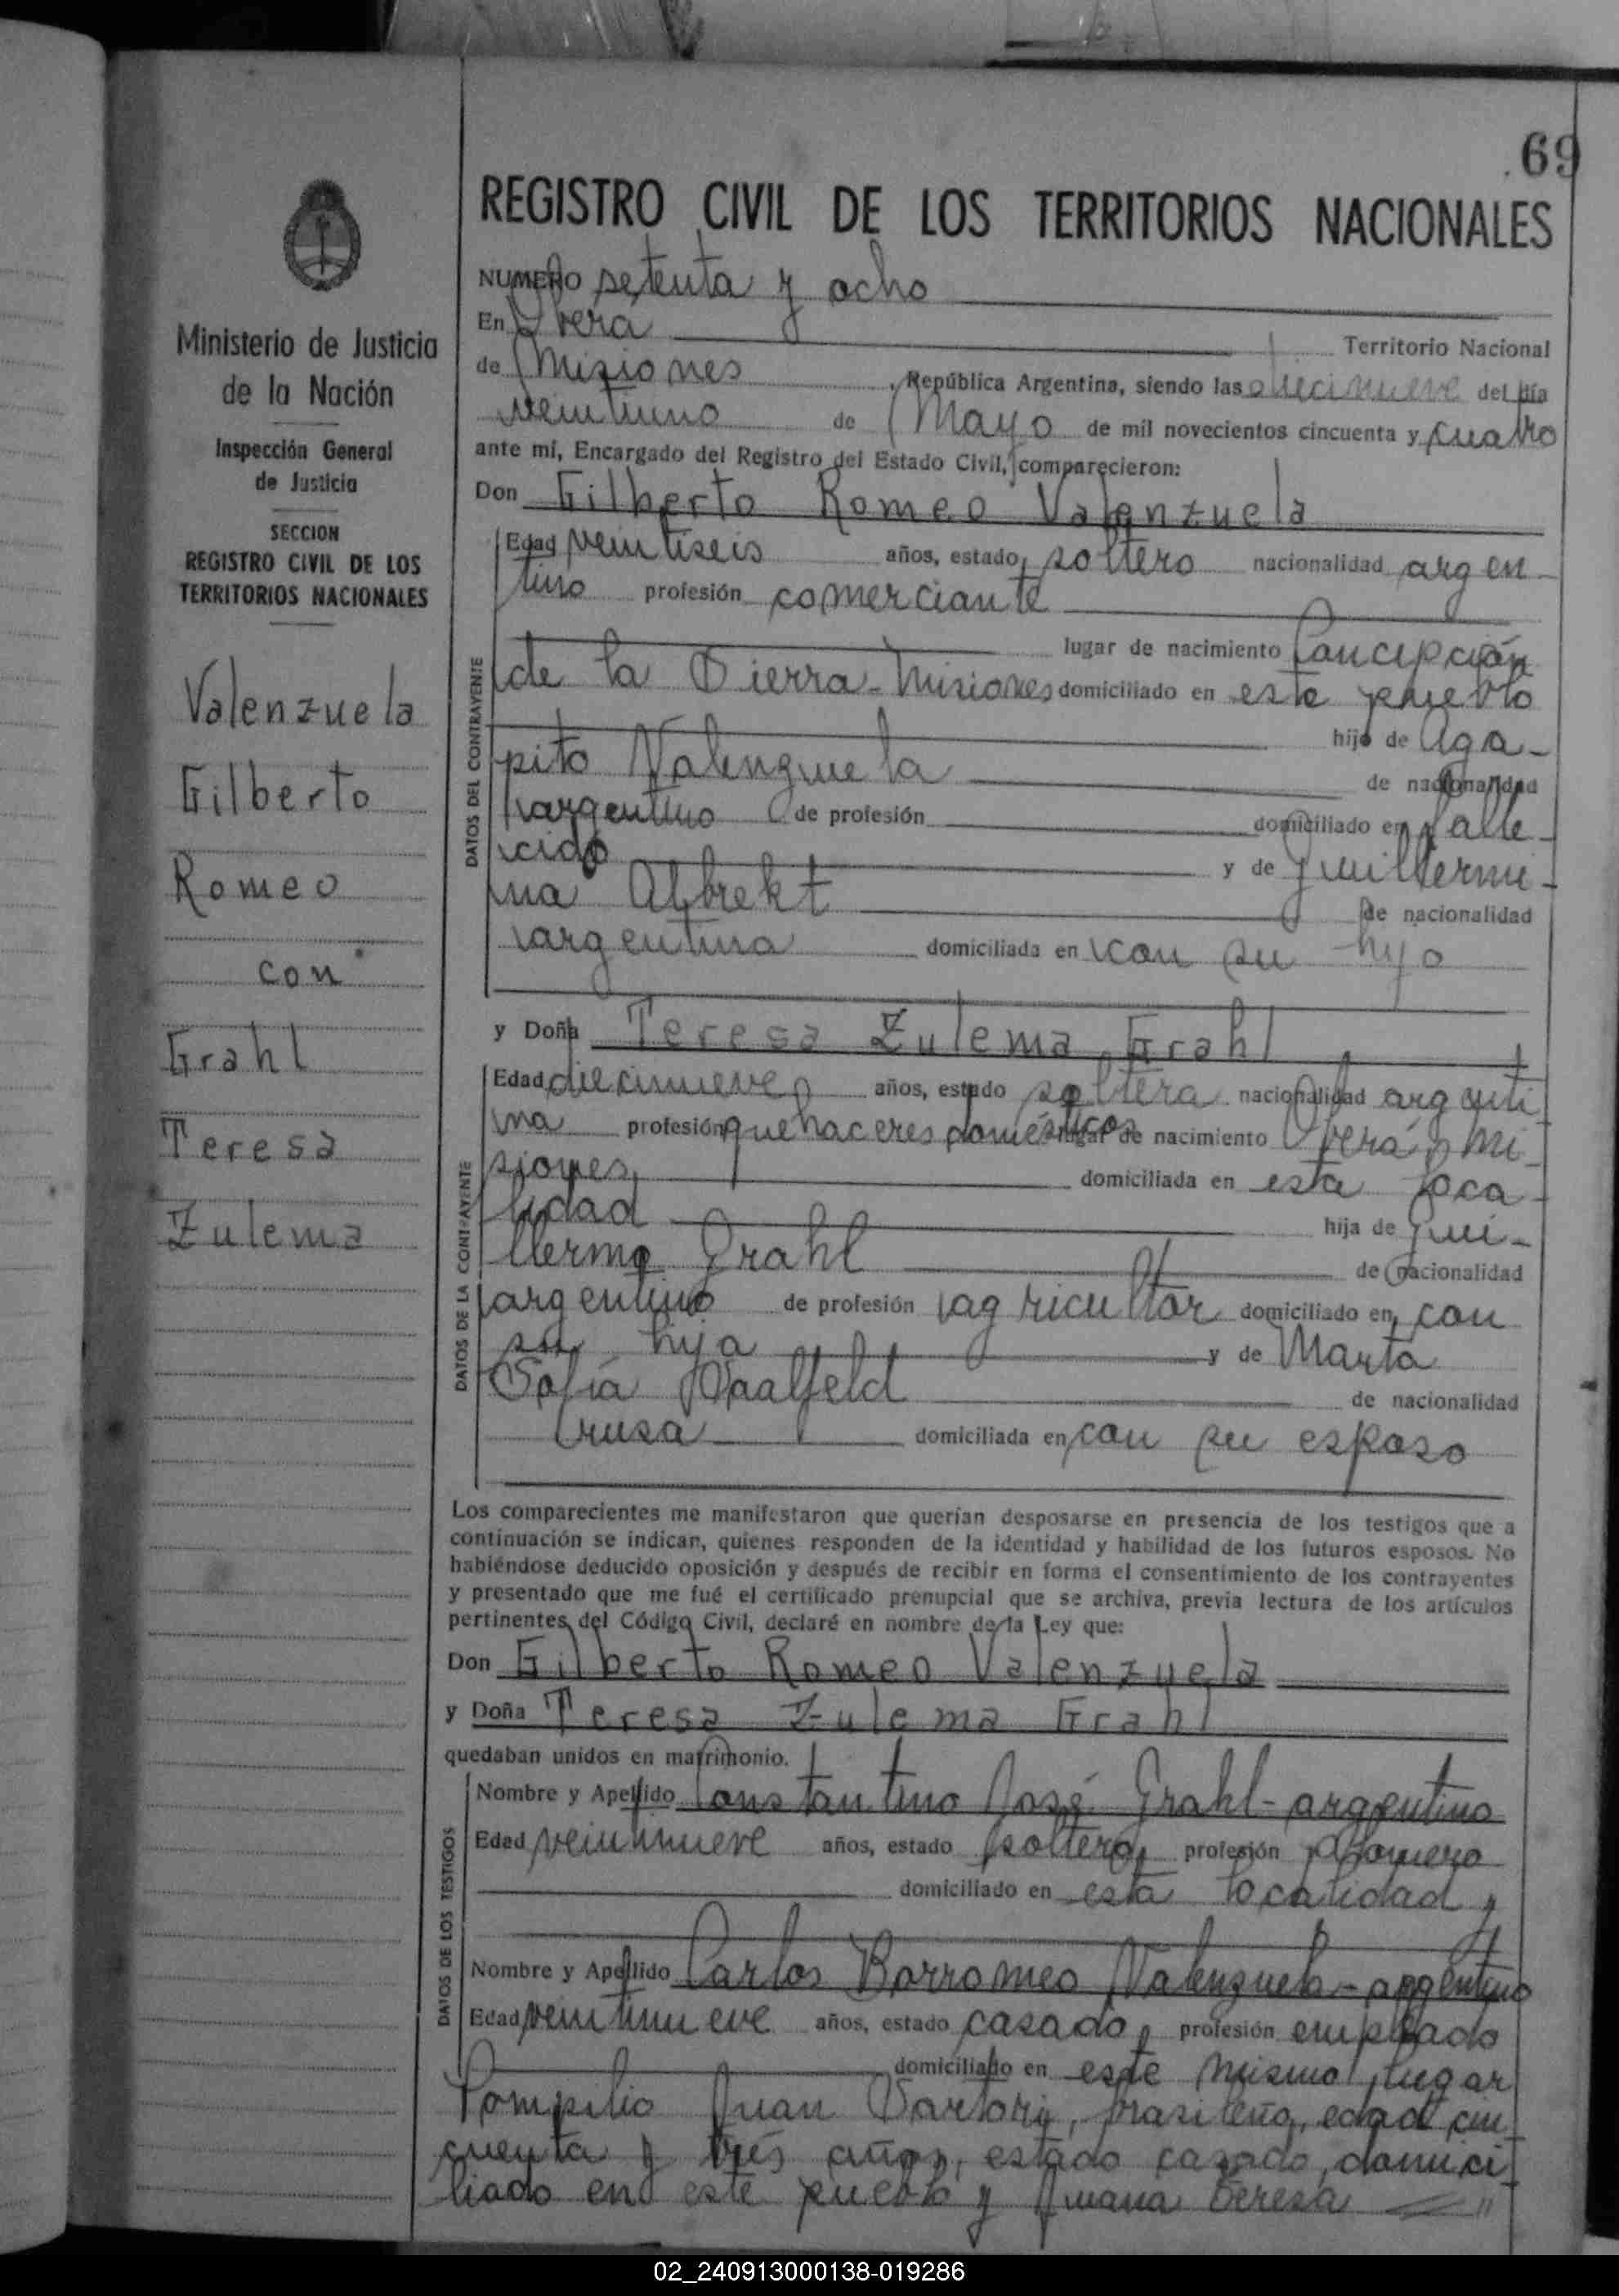 69
REGISTRO CIVIL DE LOS TERRITORIOS NACIONALES
Ministerio de Justicia
de la Nación
Inspección General
de Justicia
SECCION
REGISTRO CIVIL DE LOS
TERRITORIOS NACIONALES
Valenzuela
Gilberto
Romeo
con
Grahl
Teresa
Zulema
NUMERO setenta y ocho
En Oberá Territorio Nacional
de Misiones, República Argentina, siendo las diecinueve del día
veintiuno de Mayo de mil novecientos cincuenta y cuatro
ante mi, Encargado del Registro del Estado Civil, comparecieron:
Don Gilberto Romeo Valenzuela
DATOS DEL CONTRAYENTE
Edad veintiseis años, estado soltero nacionalidad argen-
tino profesión comerciante
lugar de nacimiento Concepción
de la Sierra-Misiones domiciliado en este pueblo
hijo de Aga-
pito Valenzuela de nacionalidad
argentino de profesión domiciliado en falle-
cido y de Guillermi-
na Albrekt de nacionalidad
argentina domiciliada en con su hijo
y Doña Teresa Zulema Grahl
DATOS DE LA CONTRAYENTE
Edad diecinueve años, estado soltera nacionalidad argenti
na profesión quehaceres domésticos lugar de nacimiento Oberá, Mi-
siones, domiciliada en esta loca-
lidad hija de Gui-
llermo Grahl de nacionalidad
argentino de profesión agricultor domiciliado en con
su hija y de Marta
Sofía Saalfeld de nacionalidad
rusa domiciliada en con su esposo
Los comparecientes me manifestaron que querían desposarse en presencia de los testigos que a
continuación se indican, quienes responden de la identidad y habilidad de los futuros esposos. No
habiéndose deducido oposición y después de recibir en forma el consentimiento de los contrayentes
y presentado que me fué el certificado prenupcial que se archiva, previa lectura de los artículos
pertinentes del Código Civil, declaré en nombre de la Ley que:
Don Gilberto Romeo Valenzuela
y Doña Teresa Zulema Grahl
quedaban unidos en matrimonio.
DATOS DE LOS TESTIGOS
Nombre y Apellido Constantino José Grahl-argentino
Edad veintinueve años, estado soltero, profesión
domiciliado en esta localidad y
Nombre y Apellido Carlos Borromeo Valenzuela-argentino
Edad veintinueve años, estado casado, profesión empleado
domiciliado en este mismo lugar
Pompilio Juan Sartori, brasileño, edad cin
cuenta y trés años, estado casado, domici
liado en este pueblo y Juana Teresa
02_240913000138-019286